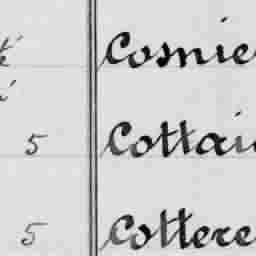 Cosnie
5 Cottai
5 Cottere